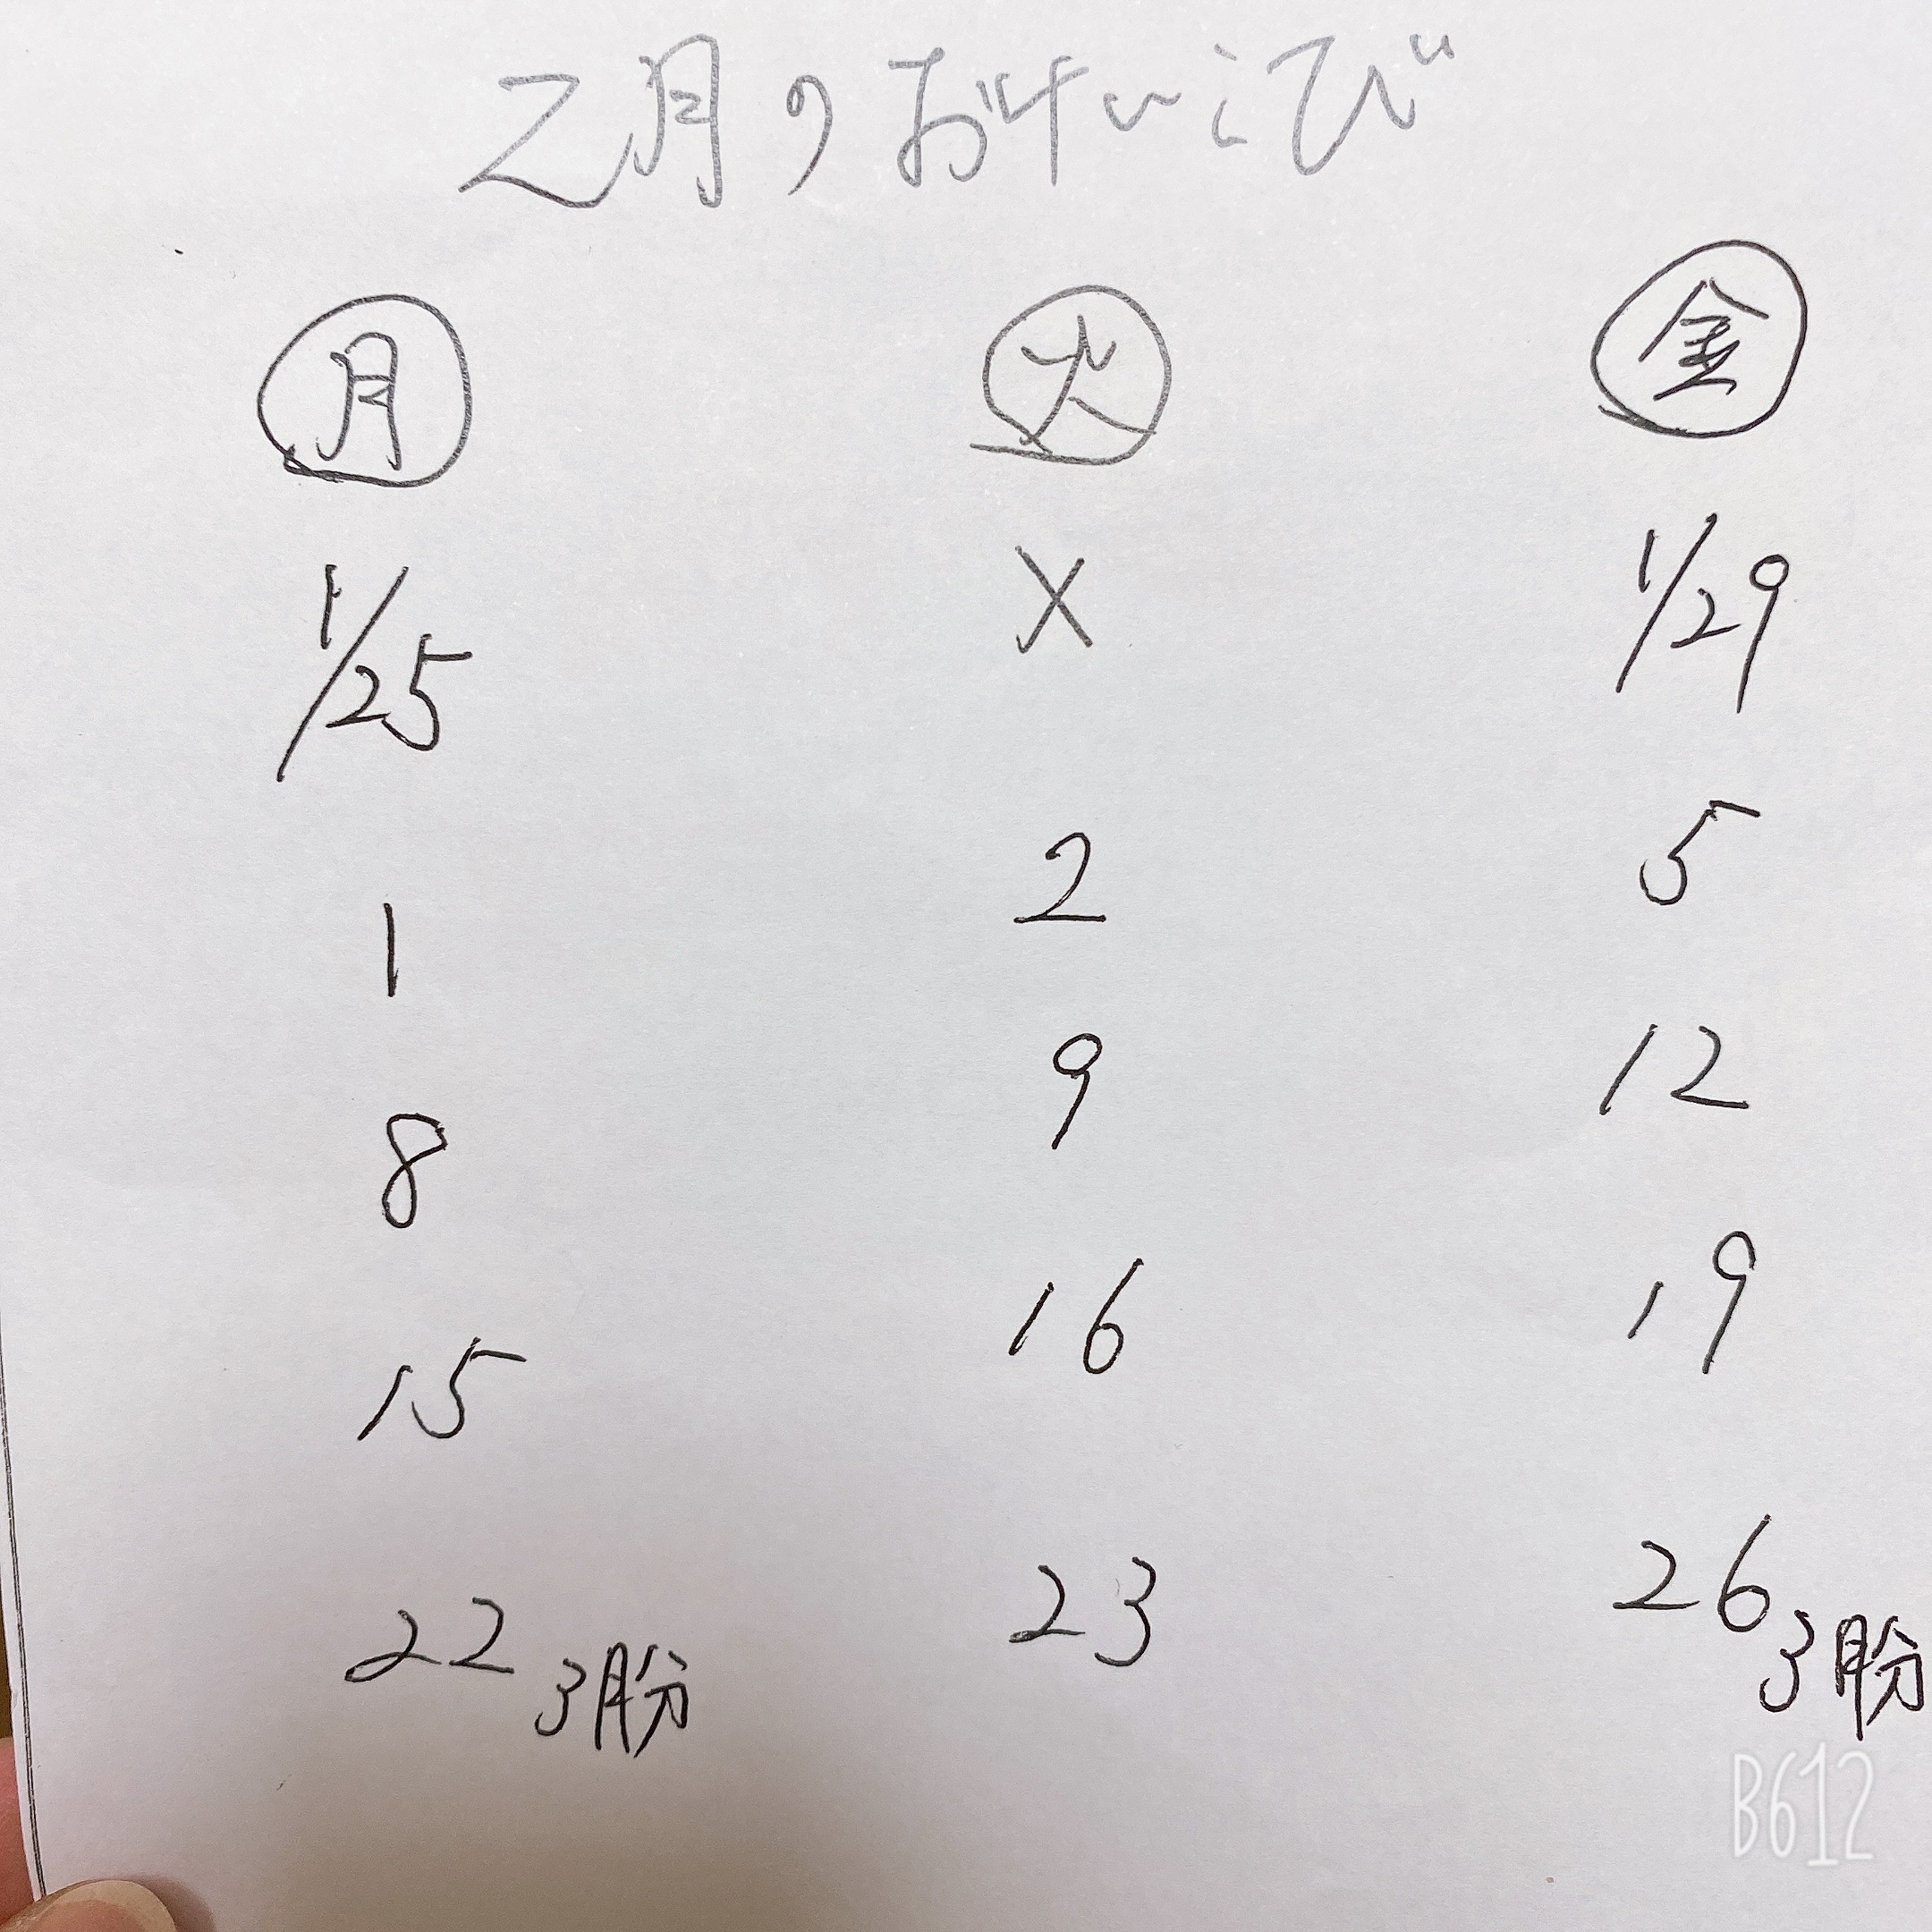 2月のおけいこび
月 火 金
1/25 X 1/29
1 2 5
8 9 12
15 16 19
22 3月分 23 26 3月分
B612